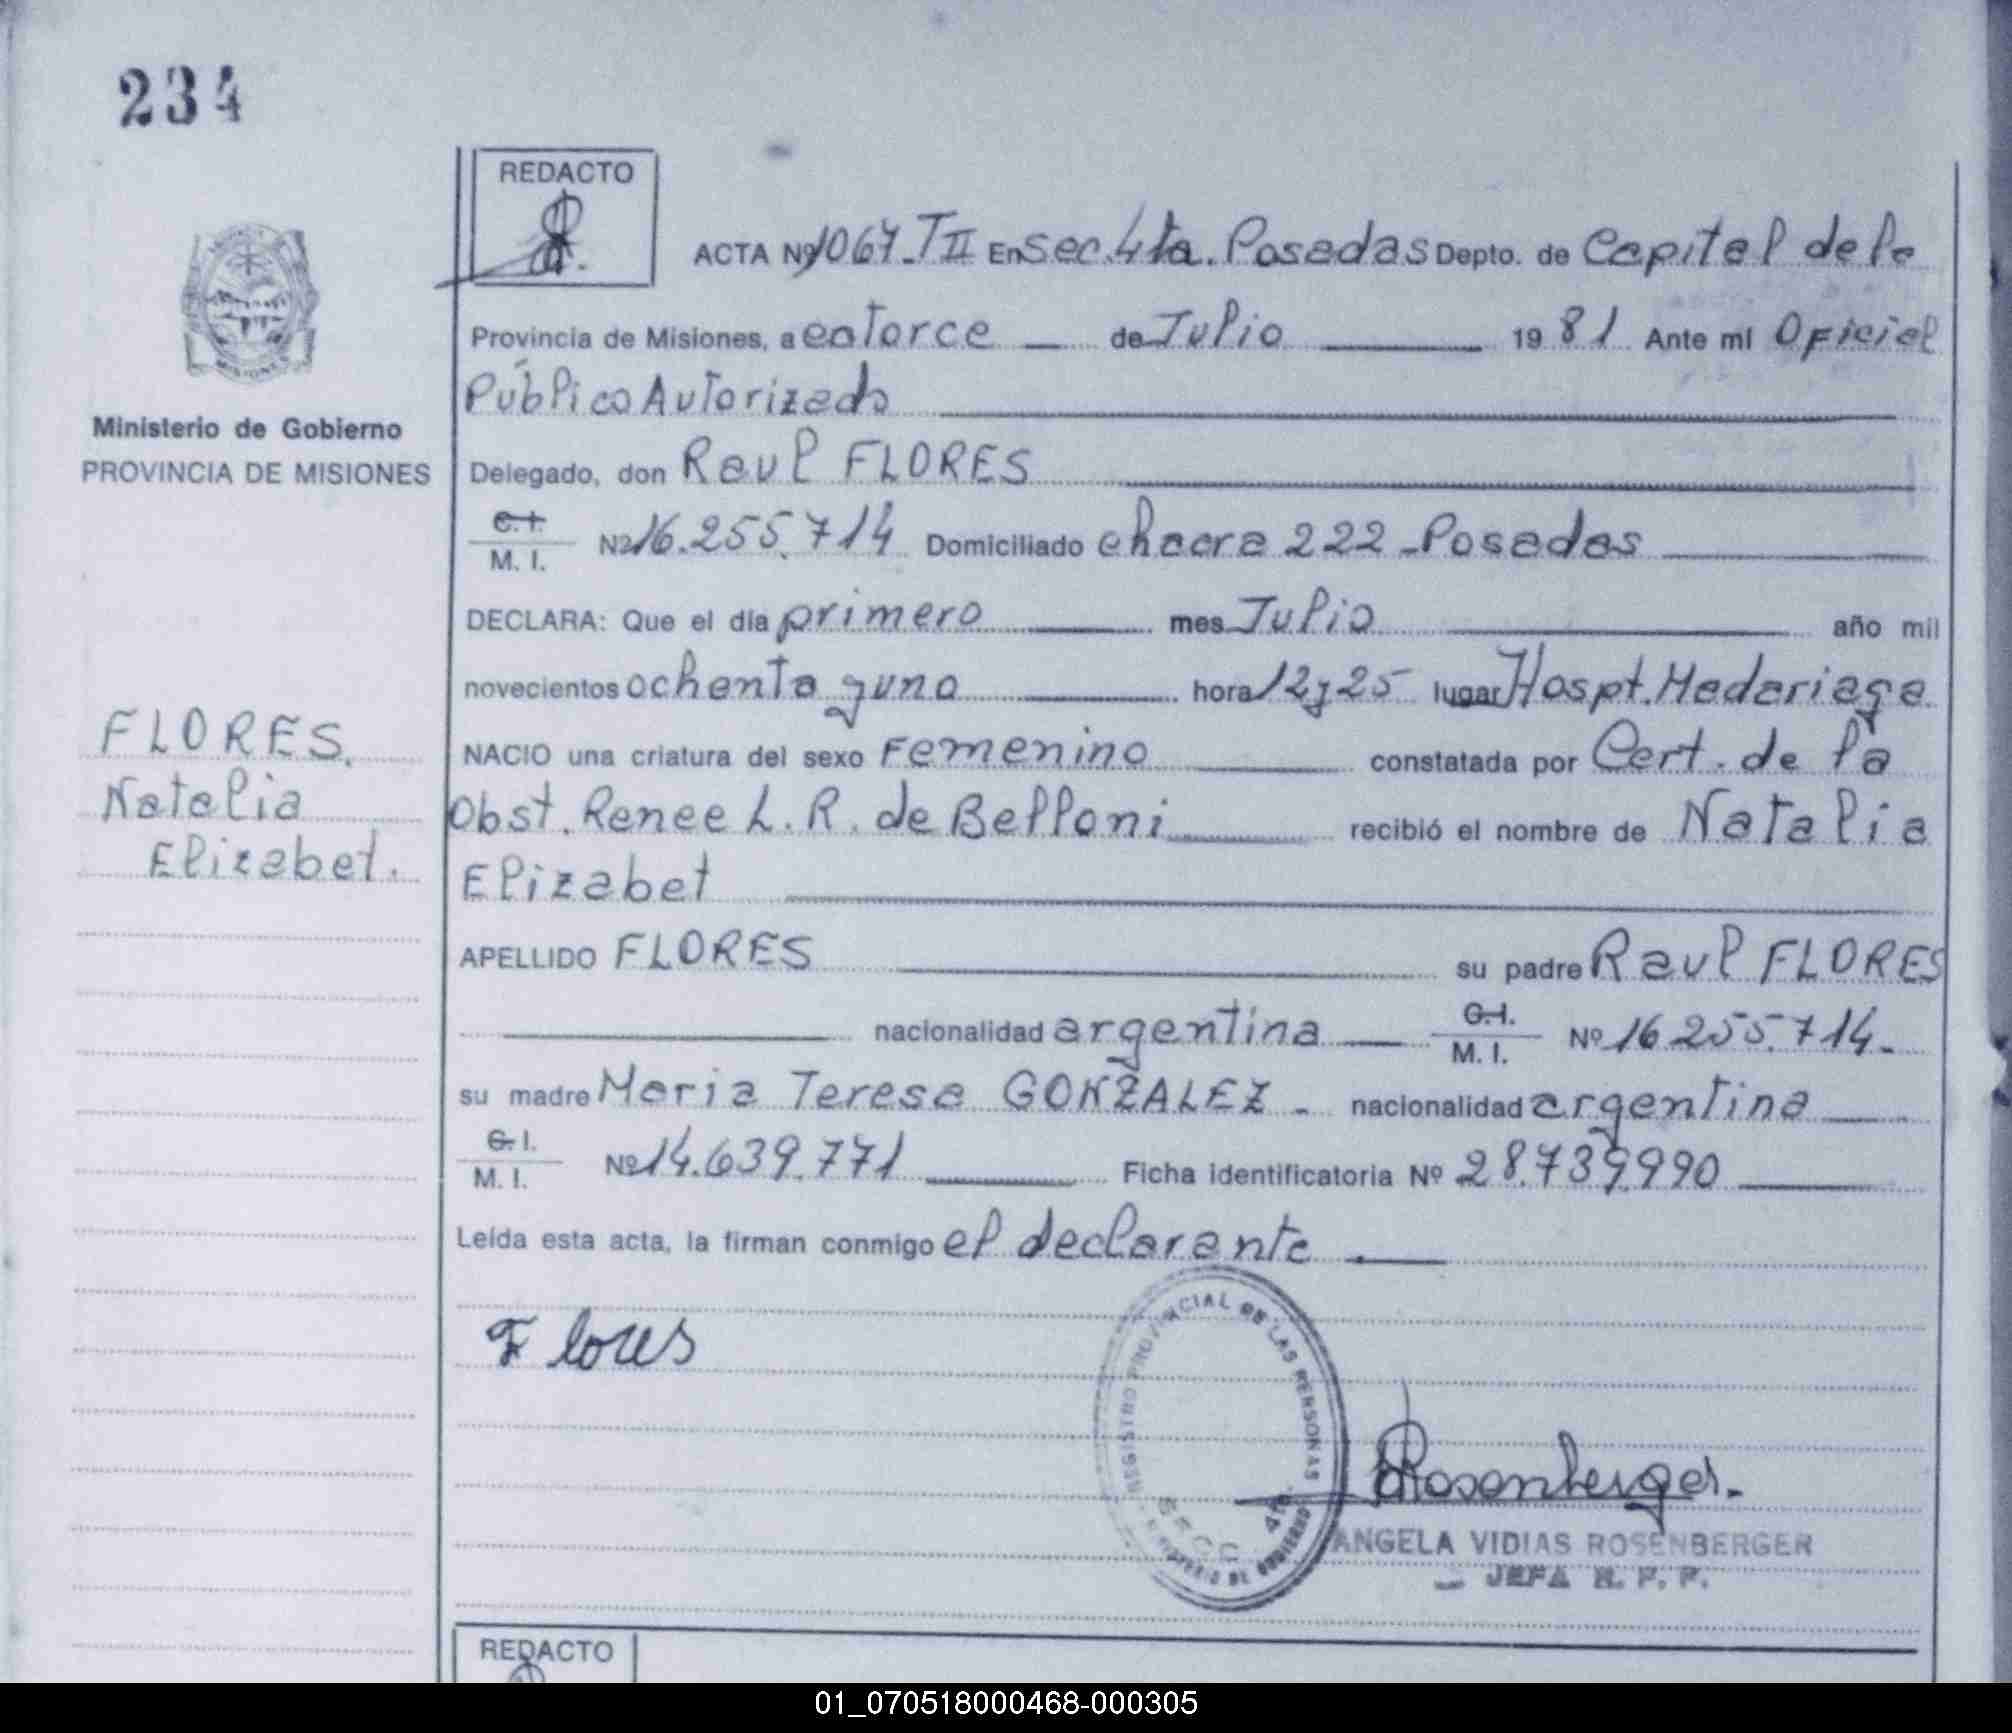 234
REDACTO
ACTA Nº 1067-TII En Sec. 4ta. Posadas Depto. de Capital de la
Provincia de Misiones, a catorce de Julio 1981 Ante mí Oficial
Público Autorizado
Ministerio de Gobierno
PROVINCIA DE MISIONES
Delegado, don Raul FLORES
C.I.
M. I. Nº 16.255.714 Domiciliado chacra 222 - Posadas
DECLARA: Que el día primero mes Julio año mil
novecientos ochenta y uno hora 12 y 25 lugar Hospt. Madariaga
FLORES,
Natalia
Elizabet.
NACIO una criatura del sexo Femenino constatada por Cert. de la
Obst. Renee L. R. de Belloni recibió el nombre de Natalia
Elizabet
APELLIDO FLORES su padre Raul FLORES
nacionalidad argentina C.I.
M. I. Nº 16.255.714.-
su madre Maria Teresa GONZALEZ - nacionalidad argentina
C.I.
M. I. Nº 14.639.771 Ficha identificatoria Nº 28.739.990
Leída esta acta, la firman conmigo el declarante.
Flores
REGISTRO PROVINCIAL DE LAS PERSONAS
SECC. 4ta.
MINISTERIO DE GOBIERNO
Rosenberger.
ANGELA VIDIAS ROSENBERGER
JEFA R. P. P.
REDACTO
01_070518000468-000305